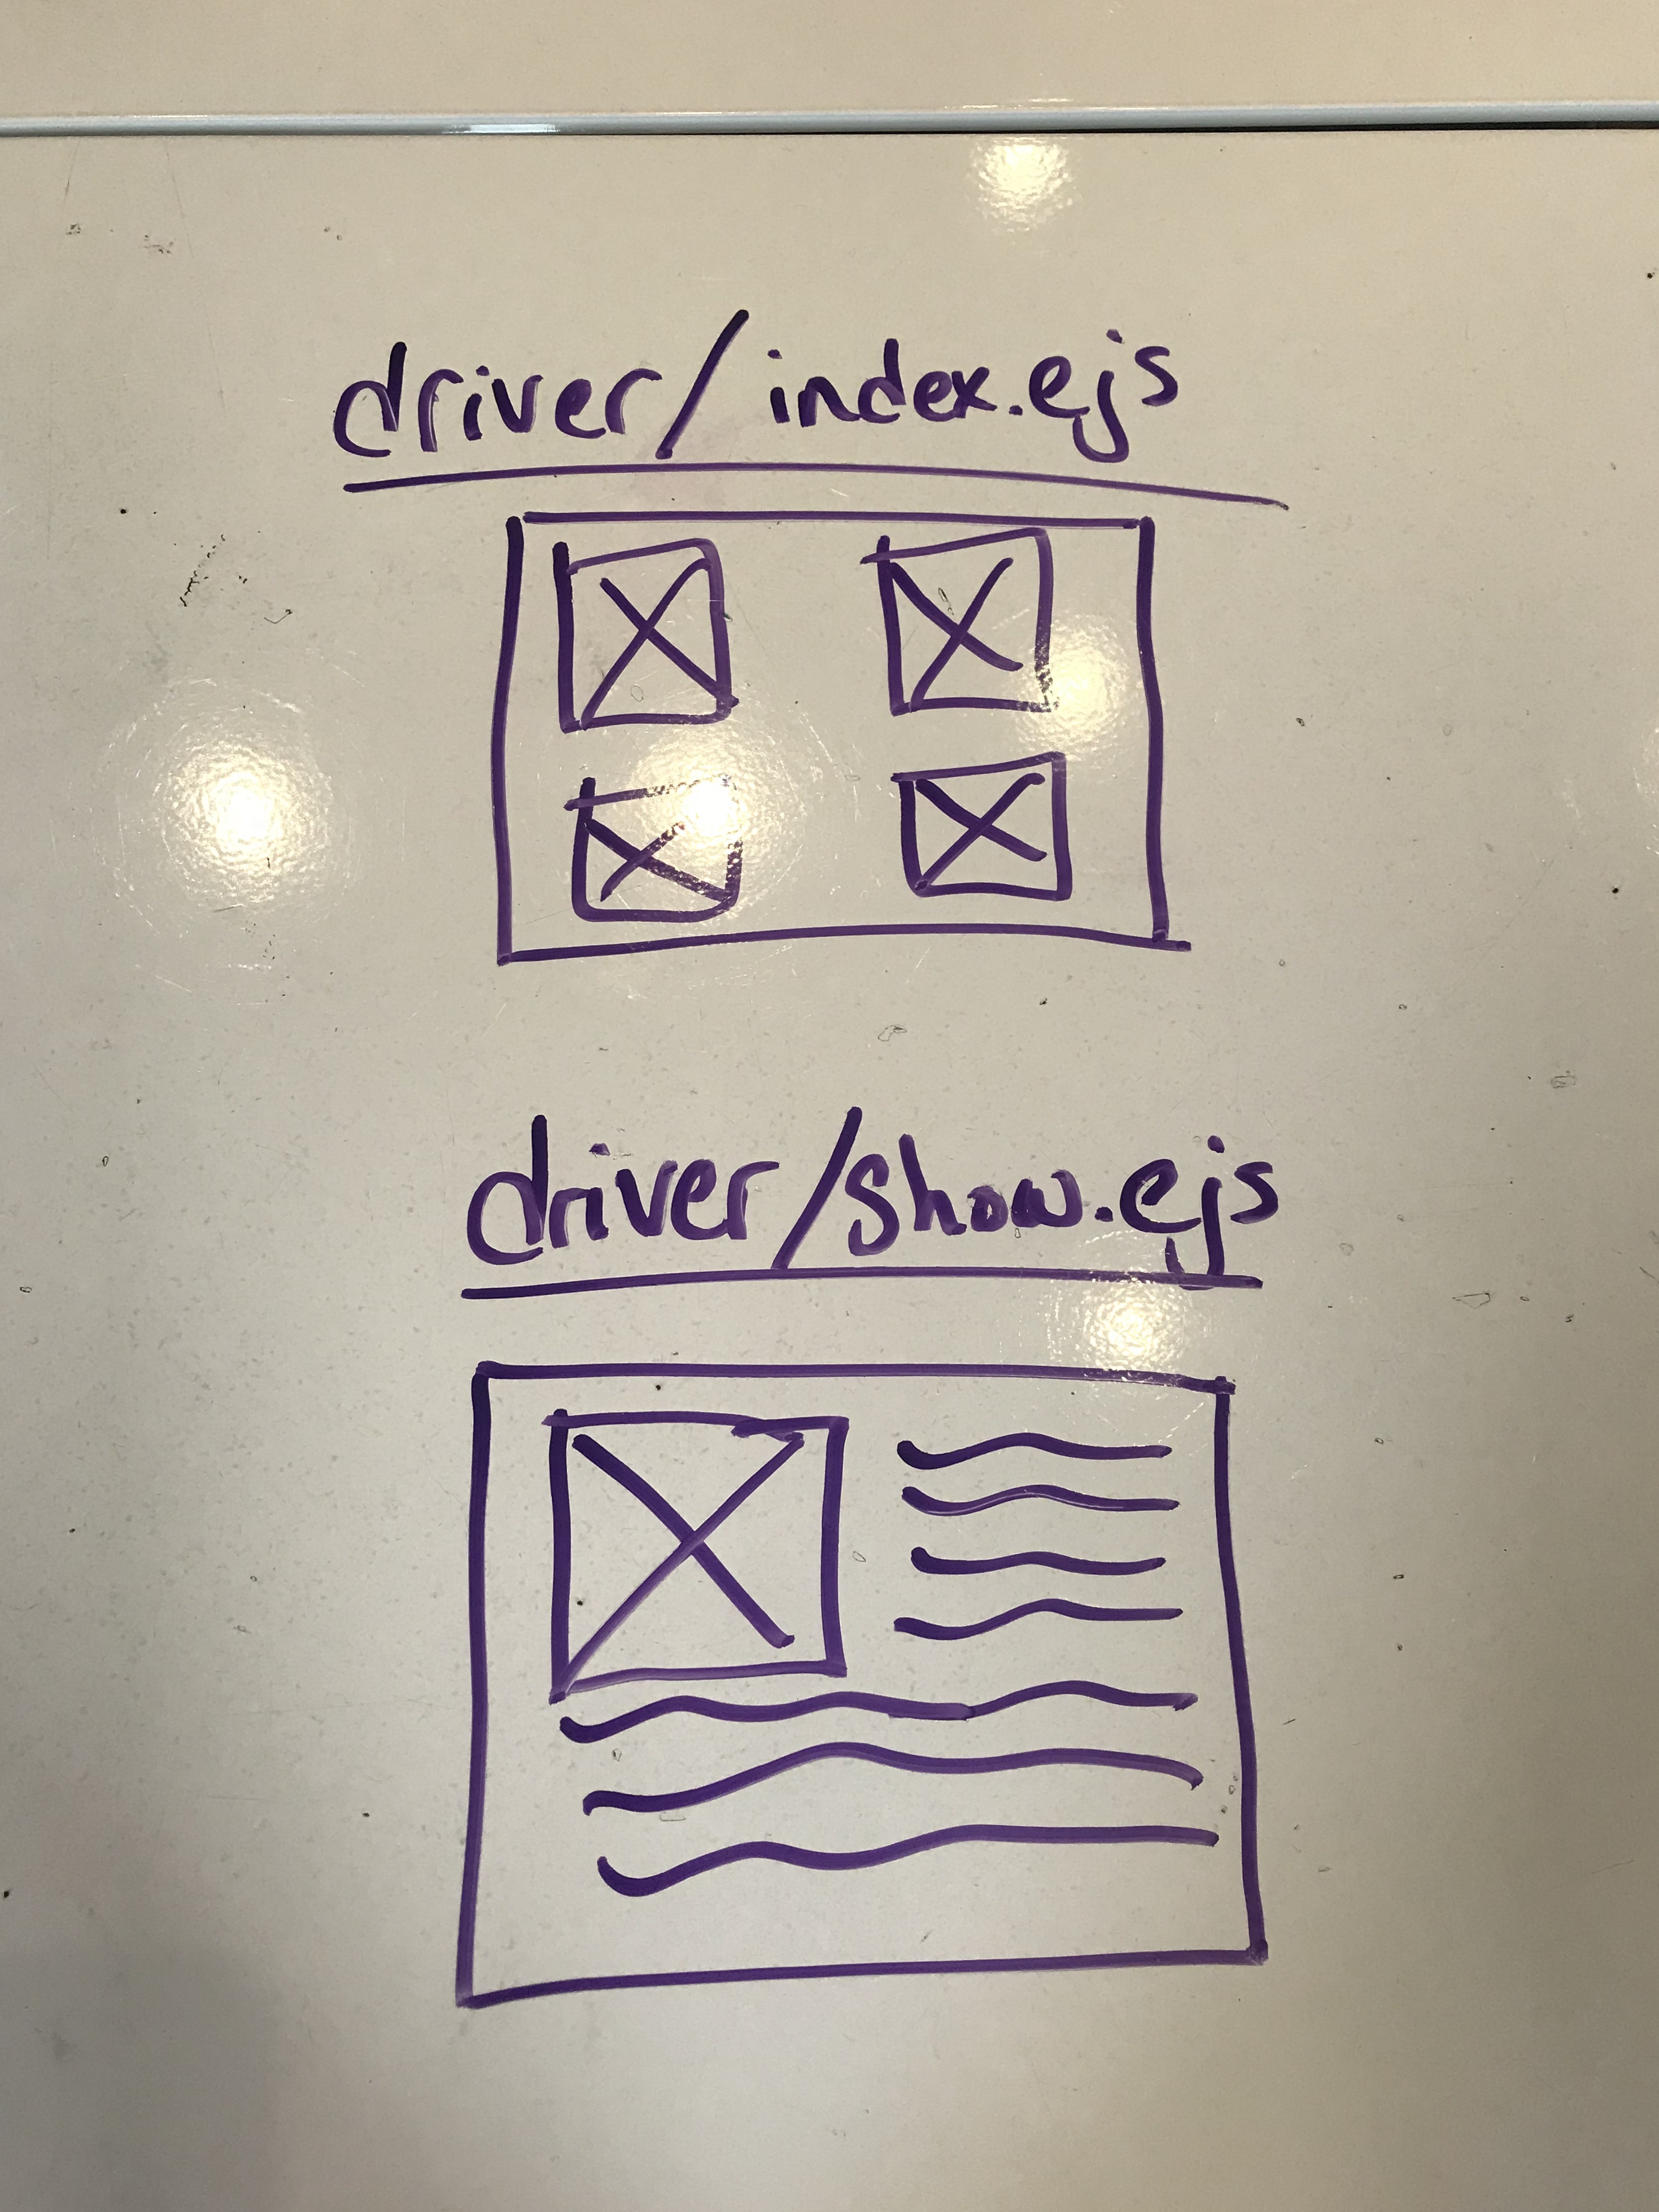 driver/index.ejs
driver/show.ejs